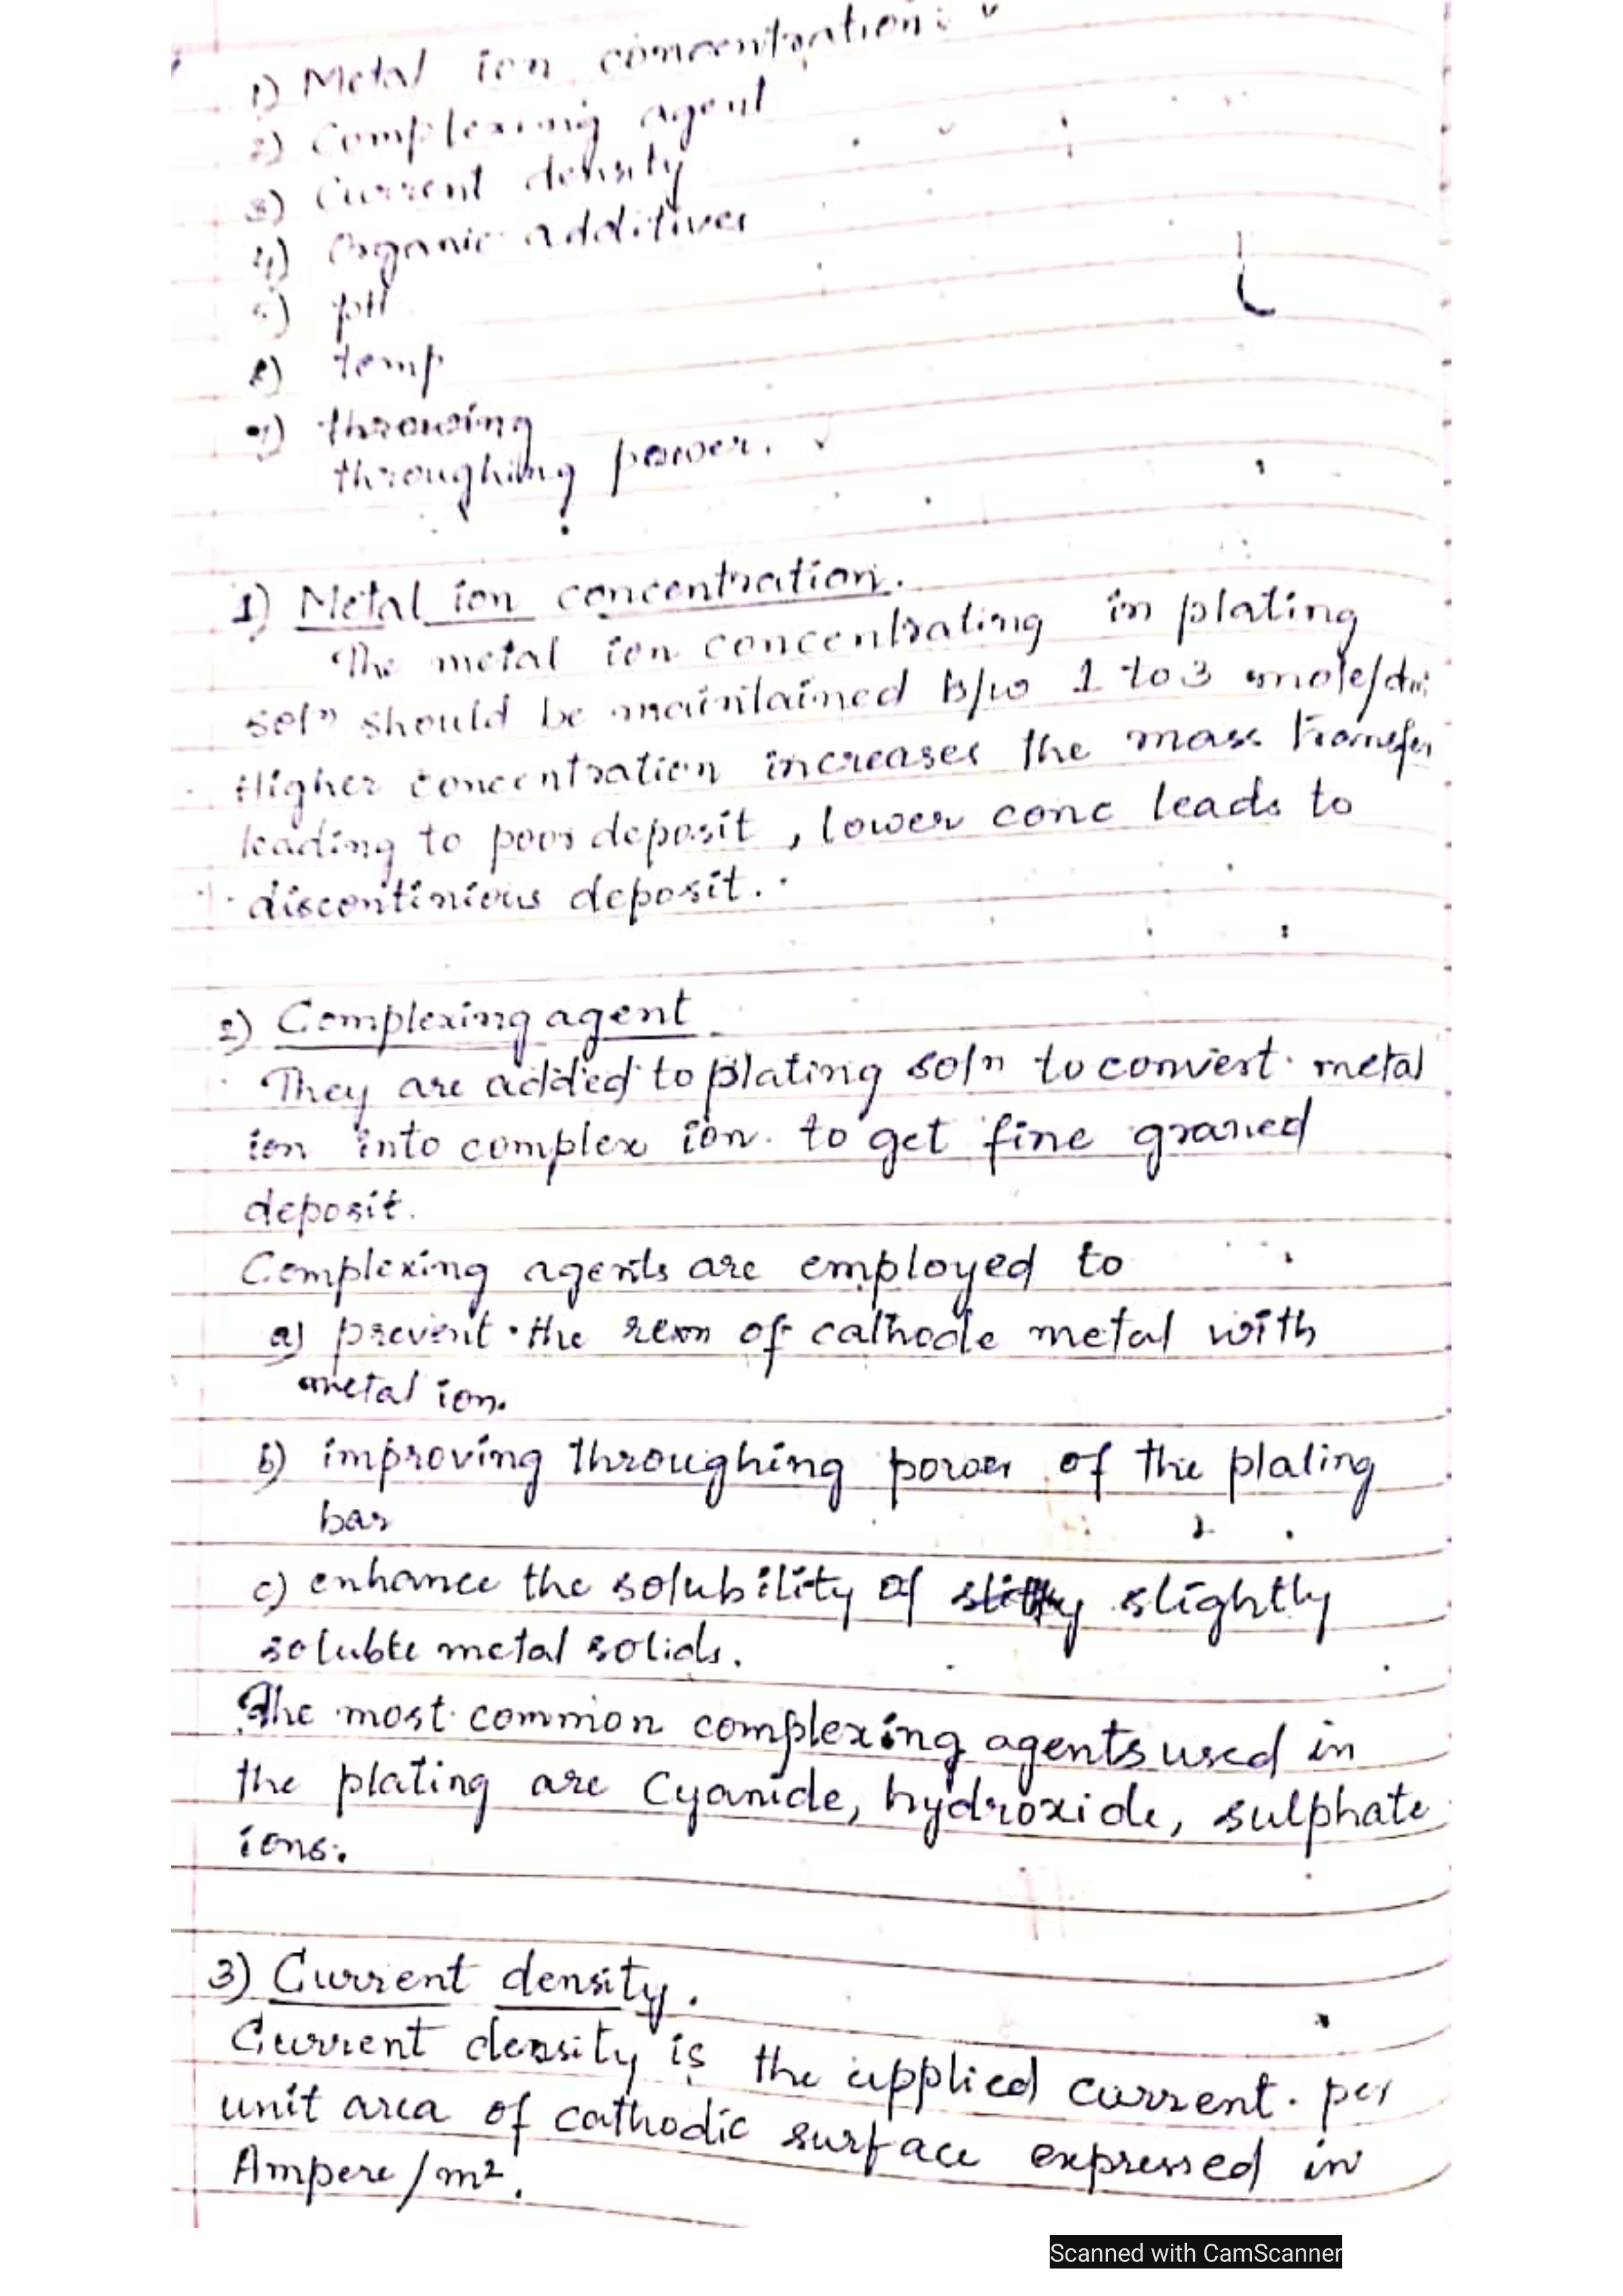 1) Metal ion concentration:
2) Complexing agent
3) Current density
4) Organic additives
5) pH
6) temp
7) throwing
throughing power.
1) Metal ion concentration.
The metal ion concentrating in plating
solⁿ should be maintained b/w 1 to 3 mole/dm
Higher concentration increases the mass transfer
leading to poor deposit , lower conc leads to
discontinious deposit.
2) Complexing agent
They are added to plating solⁿ to convert metal
ion into complex ion to get fine graned
deposit.
Complexing agents are employed to
a) prevent the rexn of cathode metal with
metal ion.
b) improving throughing power of the plating
bar
c) enhance the solubility of slightly
soluble metal solids.
The most common complexing agents used in
the plating are Cyanide, hydroxide, sulphate
ions.
3) Current density.
Current density is the applied current per
unit area of cathodic surface expressed in
Ampere/m².
Scanned with CamScanner